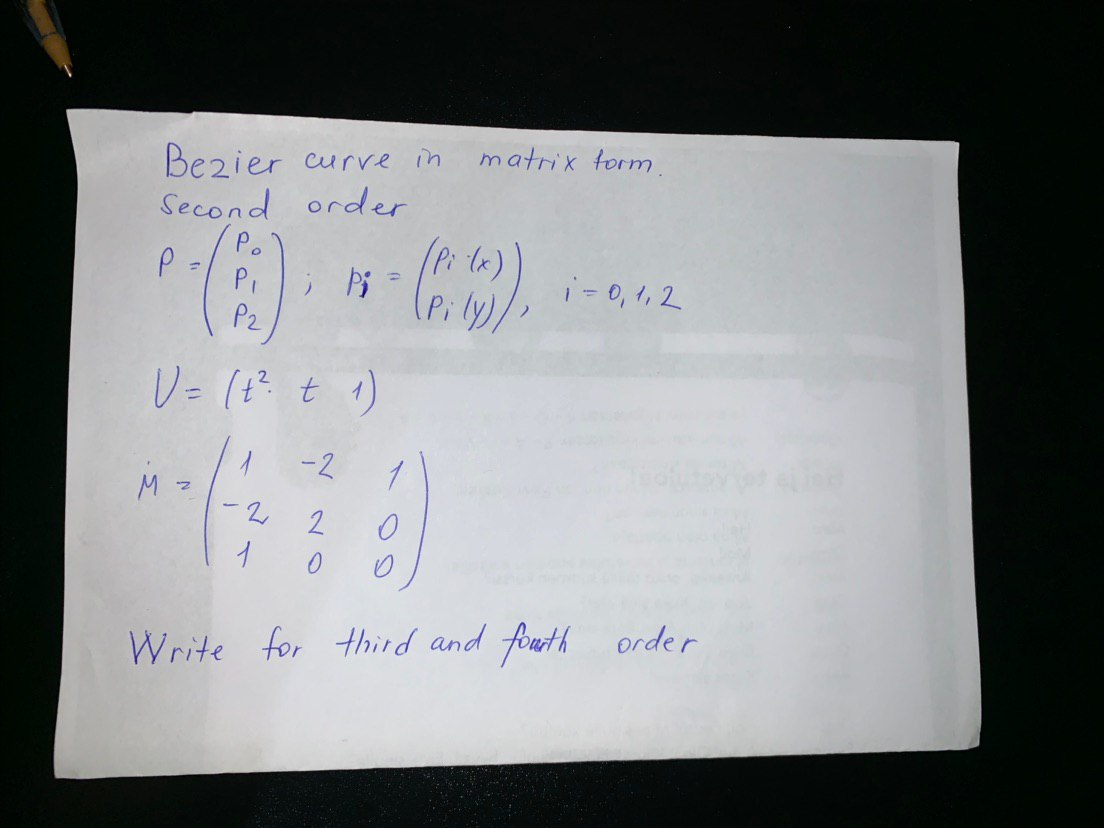 Bezier curve in matrix form.
Second order
P = (P₀ P₁ P₂) ; Pi = (Pi (x) Pi (y)), i = 0, 1, 2
U = (t² t 1)
M = (1 -2 1
-2 2 0
1 0 0)
Write for third and fourth order